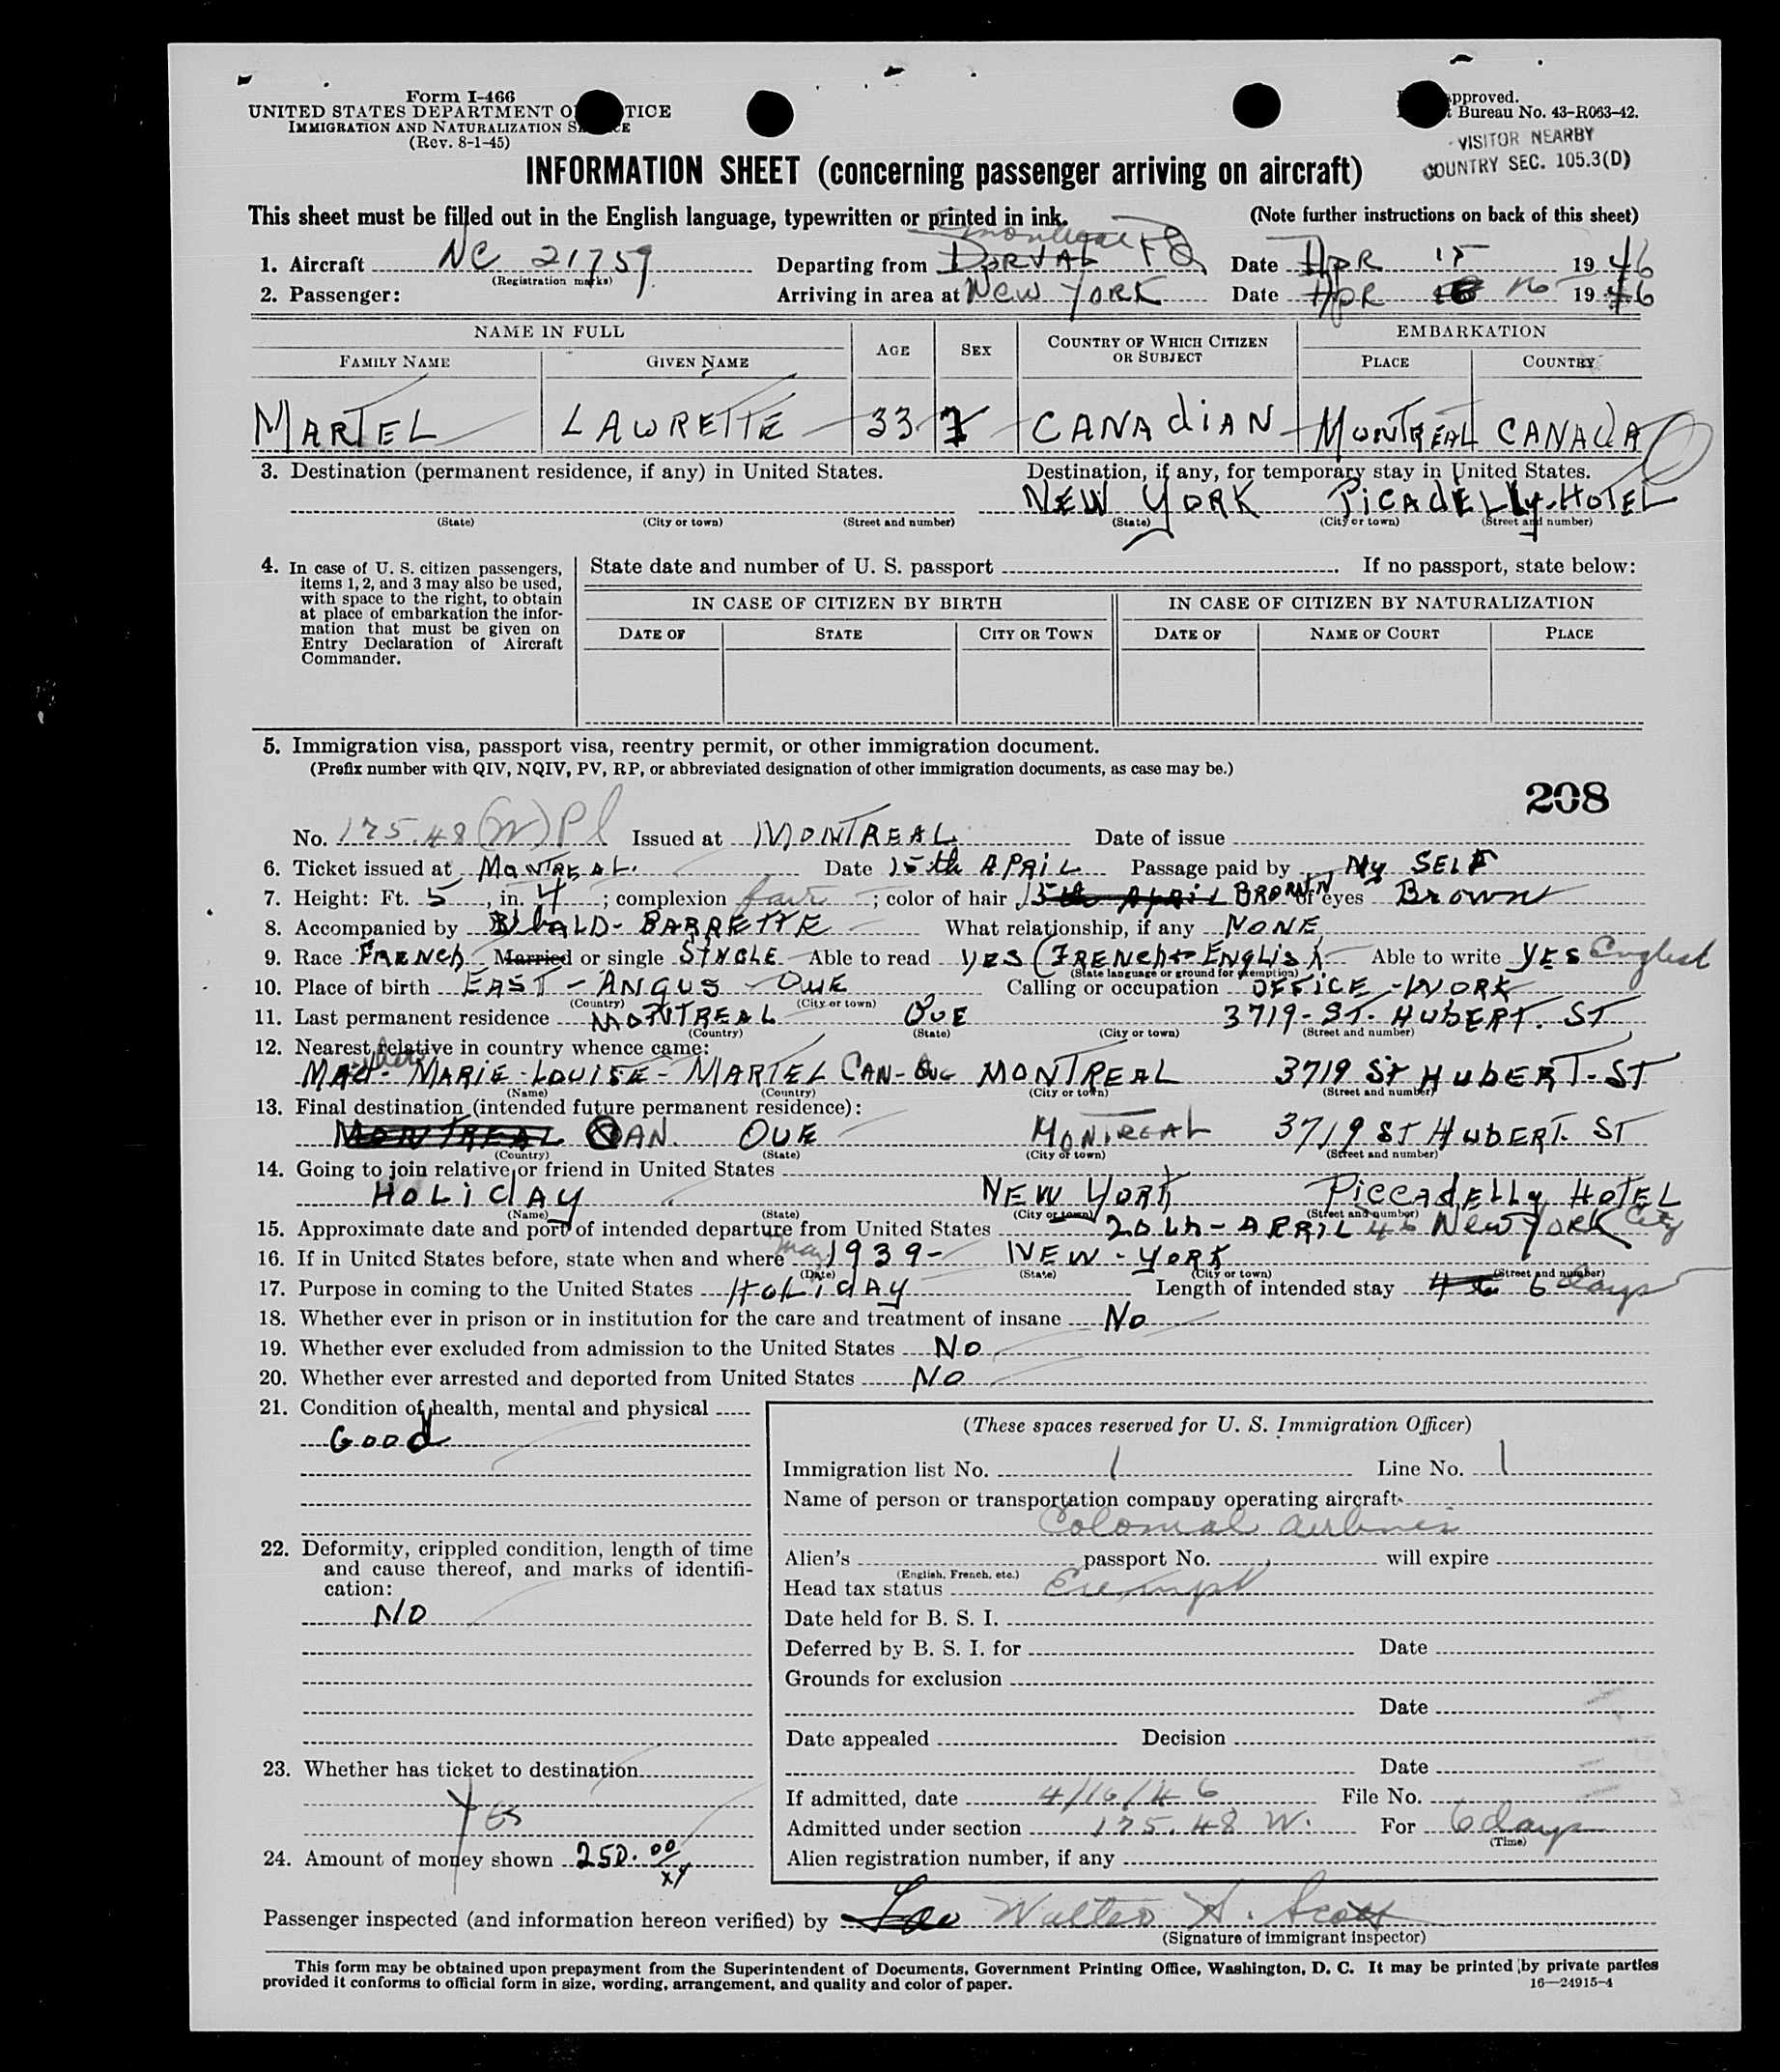 Form I-466
UNITED STATES DEPARTMENT OF JUSTICE
IMMIGRATION AND NATURALIZATION SERVICE
(Rev. 8-1-45)
pproved.
Bureau No. 43-R063-42.
VISITOR NEARBY
COUNTRY SEC. 105.3(D)
INFORMATION SHEET (concerning passenger arriving on aircraft)
This sheet must be filled out in the English language, typewritten or printed in ink. (Note further instructions on back of this sheet)
Montreal PQ
1. Aircraft NC 21759 Departing from DORVAL Date APR 15 1946
(Registration marks)
2. Passenger: Arriving in area at NEW YORK Date APR 16 1946
NAME IN FULL AGE SEX COUNTRY OF WHICH CITIZEN OR SUBJECT EMBARKATION
FAMILY NAME GIVEN NAME PLACE COUNTRY
MARTEL LAWRETTE 33 F CANADIAN MONTREAL CANADA
3. Destination (permanent residence, if any) in United States. Destination, if any, for temporary stay in United States.
NEW YORK PICADELLY-HOTEL
(State) (City or town) (Street and number) (State) (City or town) (Street and number)
4. In case of U. S. citizen passengers, items 1, 2, and 3 may also be used, with space to the right, to obtain at place of embarkation the information that must be given on Entry Declaration of Aircraft Commander.
State date and number of U. S. passport If no passport, state below:
IN CASE OF CITIZEN BY BIRTH IN CASE OF CITIZEN BY NATURALIZATION
DATE OF STATE CITY OR TOWN DATE OF NAME OF COURT PLACE
5. Immigration visa, passport visa, reentry permit, or other immigration document.
(Prefix number with QIV, NQIV, PV, RP, or abbreviated designation of other immigration documents, as case may be.)
208
No. 175.48 (W) Pl Issued at MONTREAL Date of issue
6. Ticket issued at MONTREAL. Date 15th APRIL Passage paid by My SELF
7. Height: Ft. 5, in. 4; complexion fair; color of hair 15th APRIL BROWN of eyes BROWN
8. Accompanied by BARRETTE What relationship, if any NONE
9. Race FRENCH Married or single SINGLE Able to read YES (FRENCH + ENGLISH Able to write YES English
(State language or ground for exemption)
10. Place of birth EAST-ANGUS-QUE Calling or occupation OFFICE-WORK
(Country) (City or town)
11. Last permanent residence MONTREAL QUE 3719-ST. HUBERT. ST
(Country) (State) (City or town) (Street and number)
12. Nearest relative in country whence came:
MARIE-LOUISE-MARTEL CAN-Que MONTREAL 3719 ST HUBERT-ST
(Name) (Country) (City or town) (Street and number)
13. Final destination (intended future permanent residence):
MONTREAL CAN. QUE MONTREAL 3719 ST HUBERT. ST
(Country) (State) (City or town) (Street and number)
14. Going to join relative or friend in United States
HOLIDAY NEW YORK PICCADELLY HOTEL
(Name) (State) (City or town) (Street and number)
15. Approximate date and port of intended departure from United States 20th-APRIL 46 NEW YORK City
16. If in United States before, state when and where May 1939- NEW-YORK
(Date) (State) (City or town) (Street and number)
17. Purpose in coming to the United States HOLIDAY Length of intended stay 6 days
18. Whether ever in prison or in institution for the care and treatment of insane No
19. Whether ever excluded from admission to the United States No
20. Whether ever arrested and deported from United States No
21. Condition of health, mental and physical
Good
22. Deformity, crippled condition, length of time and cause thereof, and marks of identification:
NO
23. Whether has ticket to destination
Yes
24. Amount of money shown 250.00/xx
(These spaces reserved for U. S. Immigration Officer)
Immigration list No. 1 Line No. 1
Name of person or transportation company operating aircraft
Colonial Airlines
Alien's passport No. will expire
(English, French, etc.)
Head tax status Exempt
Date held for B. S. I.
Deferred by B. S. I. for Date
Grounds for exclusion
Date
Date appealed Decision
Date
If admitted, date 4/16/46 File No.
Admitted under section 175.48 W. For 6 days
(Time)
Alien registration number, if any
Passenger inspected (and information hereon verified) by Walter A. Scott
(Signature of immigrant inspector)
This form may be obtained upon prepayment from the Superintendent of Documents, Government Printing Office, Washington, D. C. It may be printed by private parties
provided it conforms to official form in size, wording, arrangement, and quality and color of paper. 16—24915-4